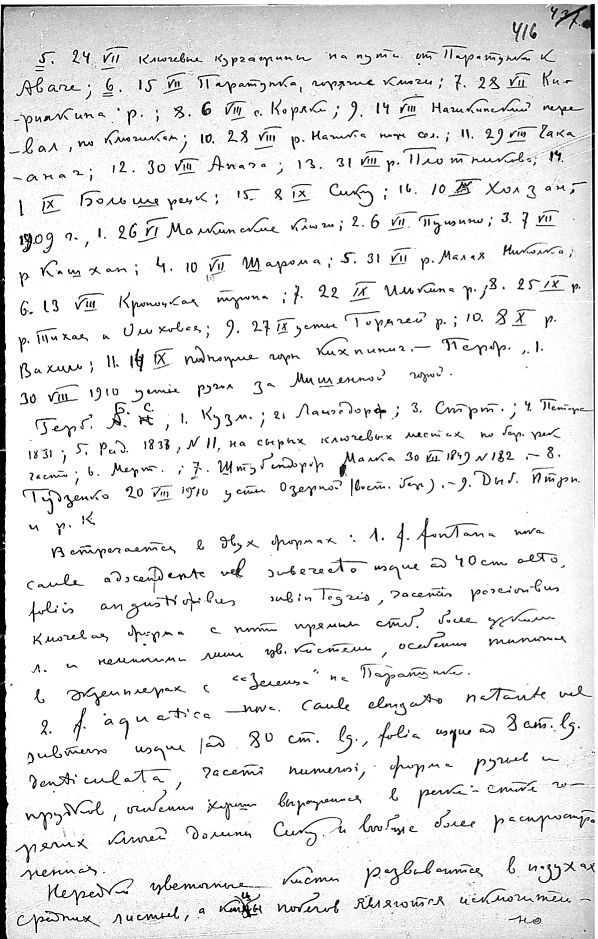 416
5. 24 VII Ключевые кургафины на пути от Паратунки к
Аваче; 6. 15 VII Паратунка, горячие ключи; 7. 28 VII Ки-
-рилкина р.; 8. 6 VIII с. Коряки; 9. 14 VIII Начикинский пере
-вал, по ключикам; 10. 28 VIII р. Начика сел.; 11. 29 VIII Чака
12. 30 VIII Апача; 13. 31 VIII р. Плотникова; 14.
1 IX Большерецк; 15. 8 IX Сику; 16. 10 IX Холзан;
1909 г., 1. 26 VI Малкинские ключи; 2. 6 VII Пущино; 3. 7 VII
р Кашхан; 4. 10 VII Шарома; 5. 31 VII р. Малая Николка;
6. 13 VIII Кроноцкая тропа; 7. 22 IX Ипкина р.; 8. 25 IX р.
р. Тихая и Ольховая; 9. 27 IX устье Горячей р.; 10. 8 X р.
Вахиль; 11. IX подножие горы Кихпинич. — 1.
30 VIII 1910 устье ручья за Мишенной горой.
Герб. Б. С., 1. Кузм.; 2. Лангсдорф; 3. Стрт.; 4. Петерс
1831; 5. Рид. 1838, N 11, на сырых ключевых местах по бер. рек
часто; 6. Мерт.; 7. Штубендорф Малка 30 VII 1849 N 182. — 8.
Гудзенко 20 VIII 1910 устье Озерной (вост. бер). — 9. Дыб. Птрп.
и р. К
Встречается в двух формах: 1. f. fontana nova
caule adscendente vel suberecto usque ad 40 cm alto,
foliis angustioribus subintegris, racemis
Ключевая форма с почти прямым стб. более узкими
л. и немногими лишь цв. кистями, особенно типична
в экземплярах с "Зеленца" на Паратунке.
2. f. aquatica — nova. caule elongato natante vel
submerso usque ad 80 cm. lg., folia usque ad 8 cm. lg.
denticulata, racemi numerosi, форма ручьев и
прудков, особенно хорошо выраженная в речке-стоке го-
рячих ключей долины Сику и вообще более распростра
ненная.
Нередко цветочные кисти развиваются в пазухах
средних листьев, а концы побегов являются исключитель-
но